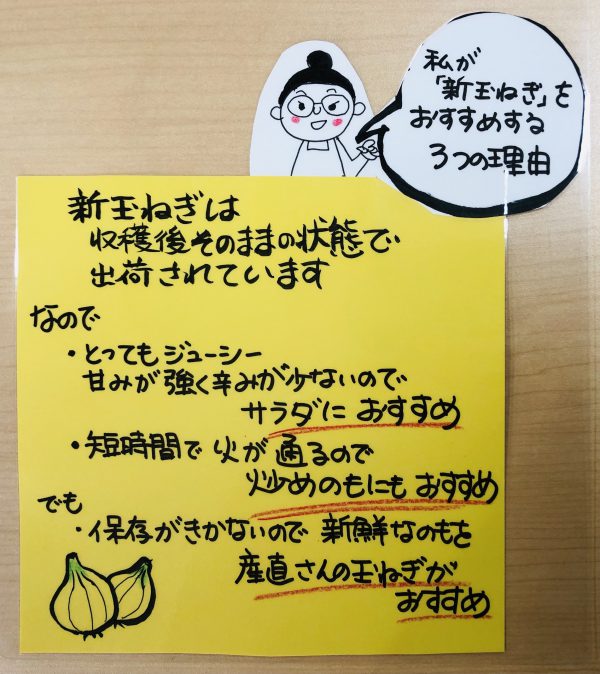 私が
「新玉ねぎ」を
おすすめする
3つの理由
新玉ねぎは
収穫後そのままの状態で
出荷されています
なので
・とってもジューシー
甘みが強く辛みが少ないので
サラダにおすすめ
・短時間で火が通るので
炒めのもにもおすすめ
でも
・保存がきかないので新鮮なのもを
産直さんの玉ねぎが
おすすめ